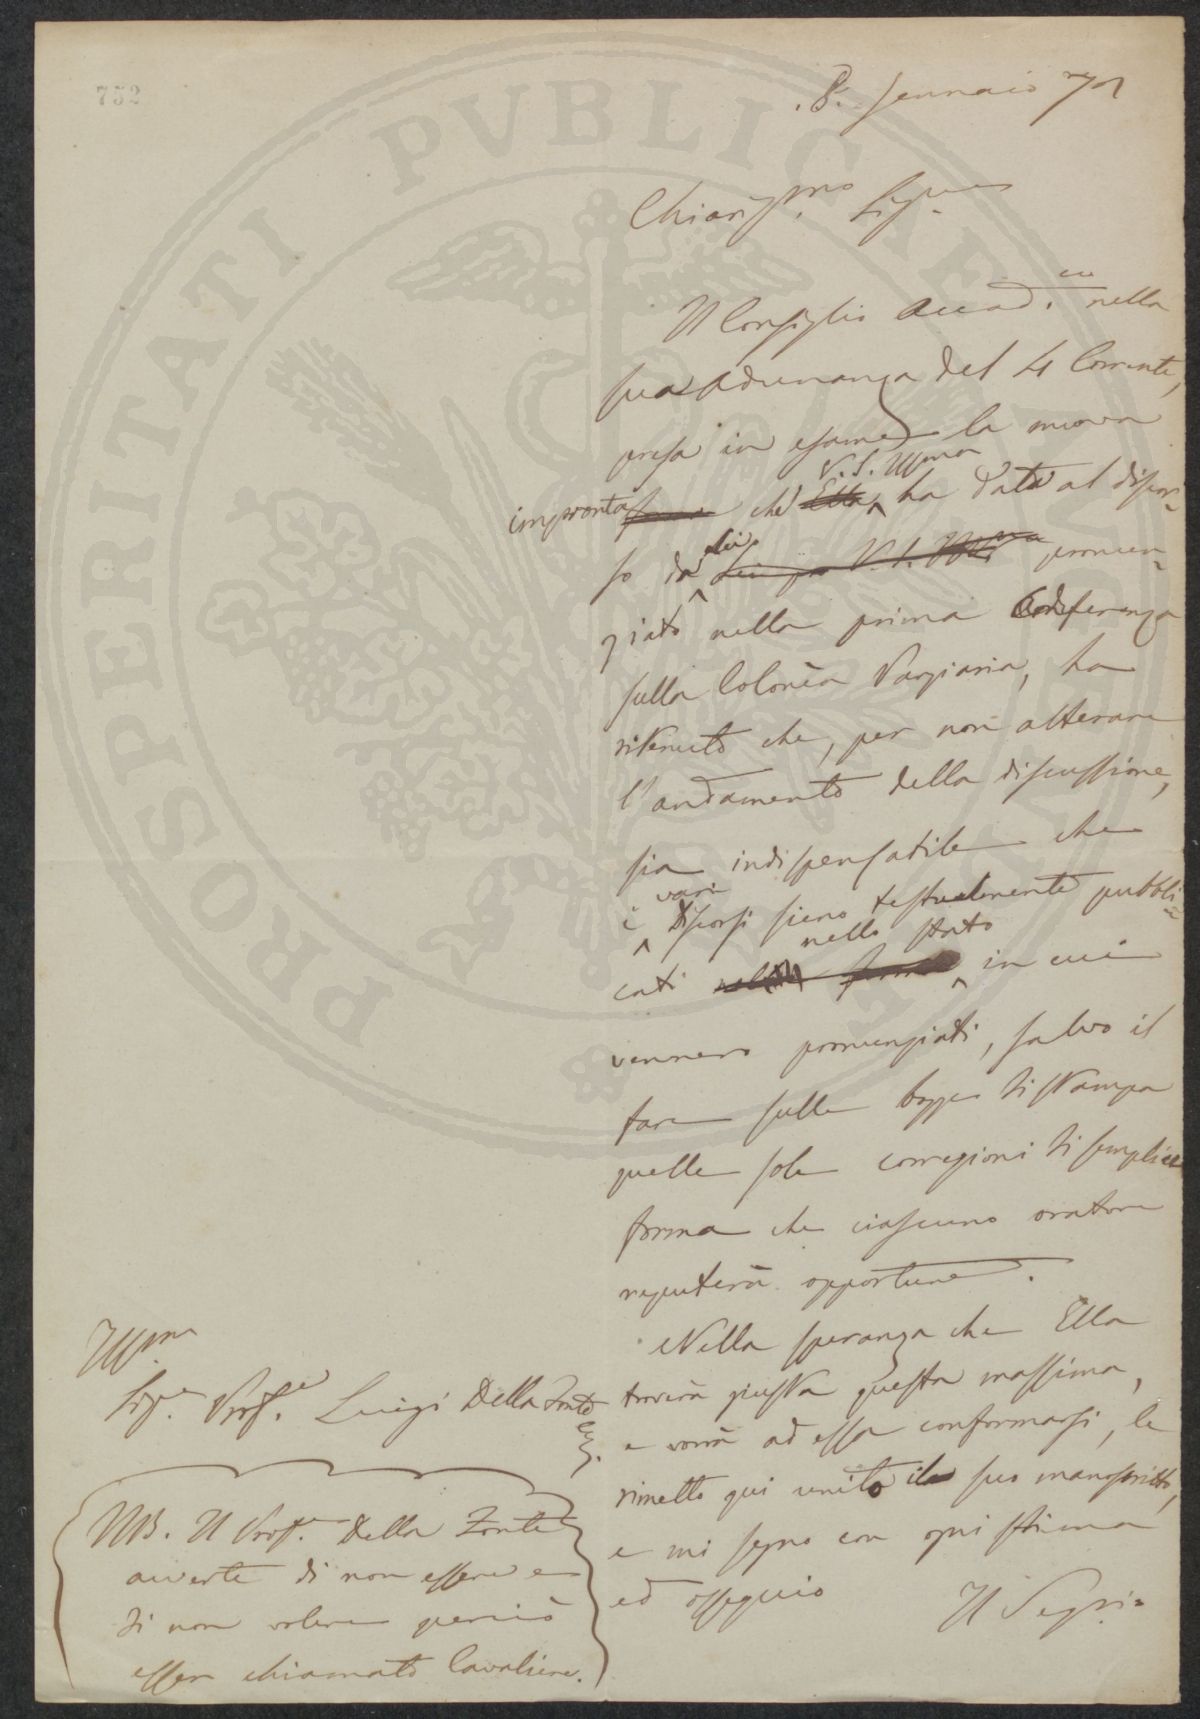 752
8. Gennaio 71
Chiariss.mo Sig.re
Il Consiglio Accad.co nella
sua Adunanza del 4 Corrente,
presa in esame la nuova
impronta che Ella V. S. Ill.ma ha data al discor-
so da Lei pronun-
ziato nella prima Conferenza
sulla Colonìa Parziaria, ha
ritenuto che, per non alterare
l'andamento della discussione,
sia indispensabile che
i vari discorsi sieno testualmente pubbli-
cati nella forma nello stato in cui
vennero pronunziati, salvo il
fare sulle bozze di stampa
quelle sole correzioni di semplice
forma che ciascuno oratore
reputerà opportune.
Nella speranza che Ella
troverà giusta questa massima,
e vorrà ad essa conformarsi, le
rimetto qui unito il suo manoscritto,
e mi segno con ogni stima
ed ossequio
Il Segr.io
Ill.mo
Sig.re Prof.re Luigi Della Fonte
NB. Il Prof.re Della Fonte
avverte di non essere e
di non volere perciò
esser chiamato Cavaliere.
PROSPERITATI PVBLICAE AVGENDAE